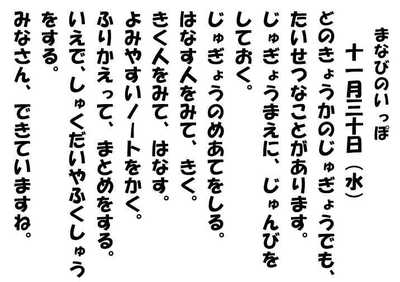 まなびのいっぽ
十一月三十日（水）
どのきょうかのじゅぎょうでも、
たいせつなことがあります。
じゅぎょうまえに、じゅんびを
しておく。
じゅぎょうのめあてをしる。
はなす人をみて、きく。
きく人をみて、はなす。
よみやすいノートをかく。
ふりかえって、まとめをする。
いえで、しゅくだいやふくしゅう
をする。
みなさん、できていますね。